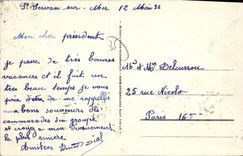 St Servan sur Mer 12 Mai 32
Mon cher président
je passe de très bonnes
vacances et il fait un
très beau temps je vous
prie de me rappeler
aux bons souvenirs des
camarades du groupe
et croyez à mon dévouement
le plus sincère
Amitiés
Mr et Mme Delcurrou
25 rue Nicolo
Paris 16